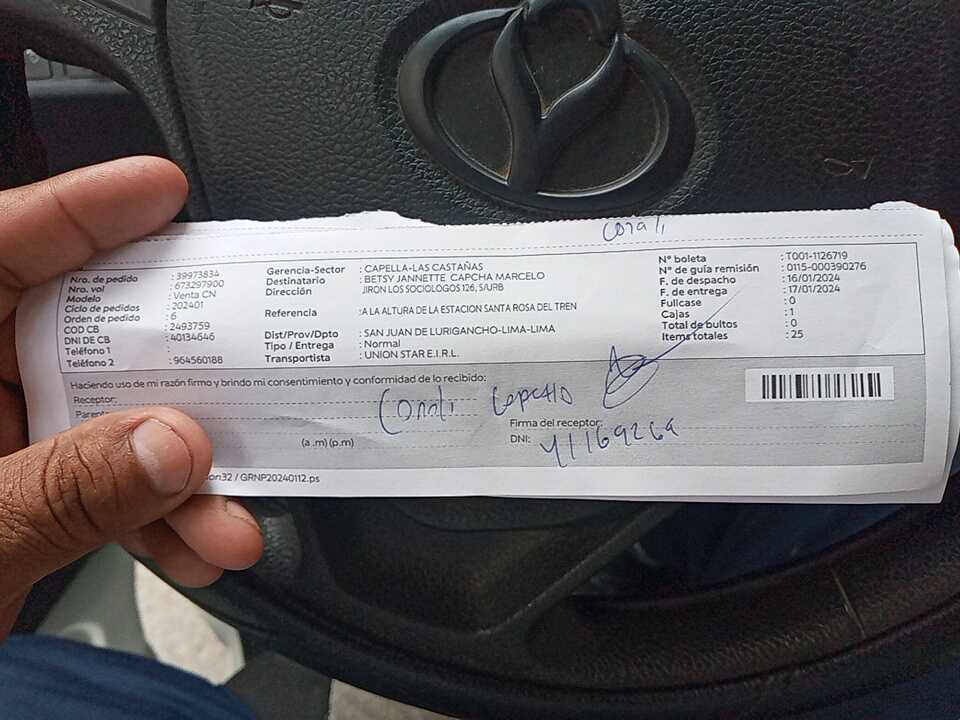 Nro. de pedido : 39973834
Nro. vol : 673297900
Modelo : Venta CN
Ciclo de pedidos : 202401
Orden de pedido : 6
COD CB : 2493759
DNI DE CB : 40134646
Teléfono 1 :
Teléfono 2 : 964560188
Gerencia-Sector : CAPELLA-LAS CASTAÑAS
Destinatario : BETSY JANNETTE CAPCHA MARCELO
Dirección JIRON LOS SOCIOLOGOS 126, S/URB
Referencia : A LA ALTURA DE LA ESTACION SANTA ROSA DEL TREN
Dist/Prov/Dpto : SAN JUAN DE LURIGANCHO-LIMA-LIMA
Tipo / Entrega : Normal
Transportista : UNION STAR E.I.R.L.
N° boleta : T001-1126719
N° de guía remisión : 0115-000390276
F. de despacho : 16/01/2024
F. de entrega : 17/01/2024
Fullcase : 0
Cajas : 1
Total de bultos : 0
Items totales : 25
Haciendo uso de mi razón firmo y brindo mi consentimiento y conformidad de lo recibido:
Receptor:
(a .m) (p.m)
Firma del receptor:
DNI: 41169269
/ GRNP20240112.ps